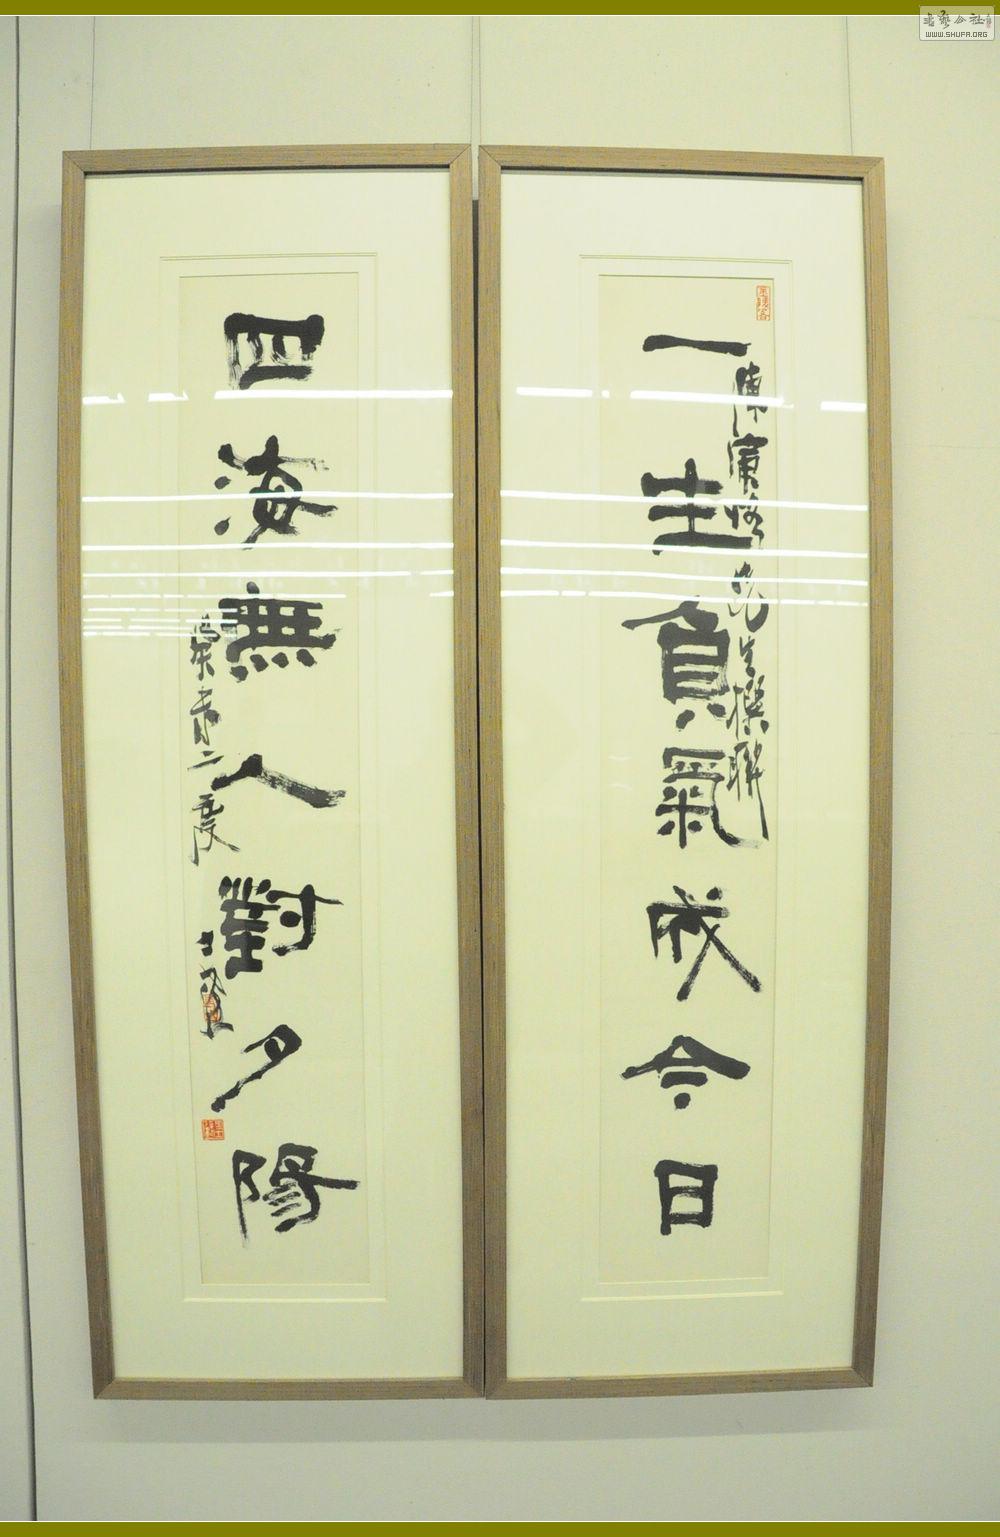 一生負氣成今日
陳寅恪先生撰聯
四海無人對夕陽
書藝公社
WWW.SHUFA.ORG